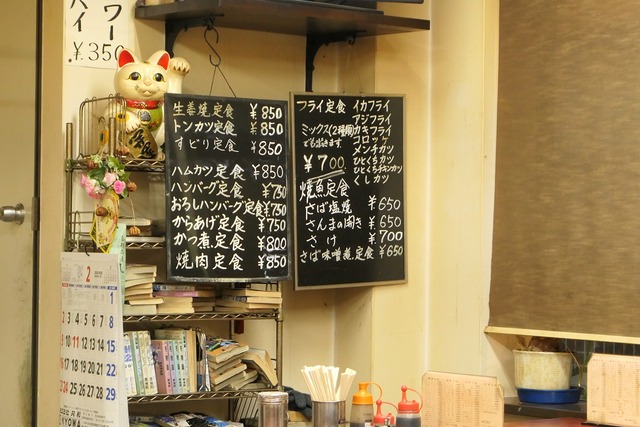 ワー
ハイ
¥.350
生姜焼定食 ¥850
トンカツ定食 ¥850
すビリ定食 ¥850
ハムカツ定食 ¥850
ハンバーグ定食 ¥750
おろしハンバーグ定食 ¥750
からあげ定食 ¥750
かつ煮定食 ¥800
焼肉定食 ¥850
フライ定食
ミックス(2種類)
でも出きます
¥700
イカフライ
アジフライ
カキフライ
コロッケ
メンチカツ
ひとくちカツ
ひとくちチキンカツ
くしカツ
焼魚定食
さば塩焼 ¥650
さんまの開き ¥650
さけ ¥700
さば味噌煮定食 ¥650
2
1
2 3 4 5 6 7 8
9 10 11 12 13 14 15
16 17 18 19 20 21 22
23 24 25 26 27 28 29